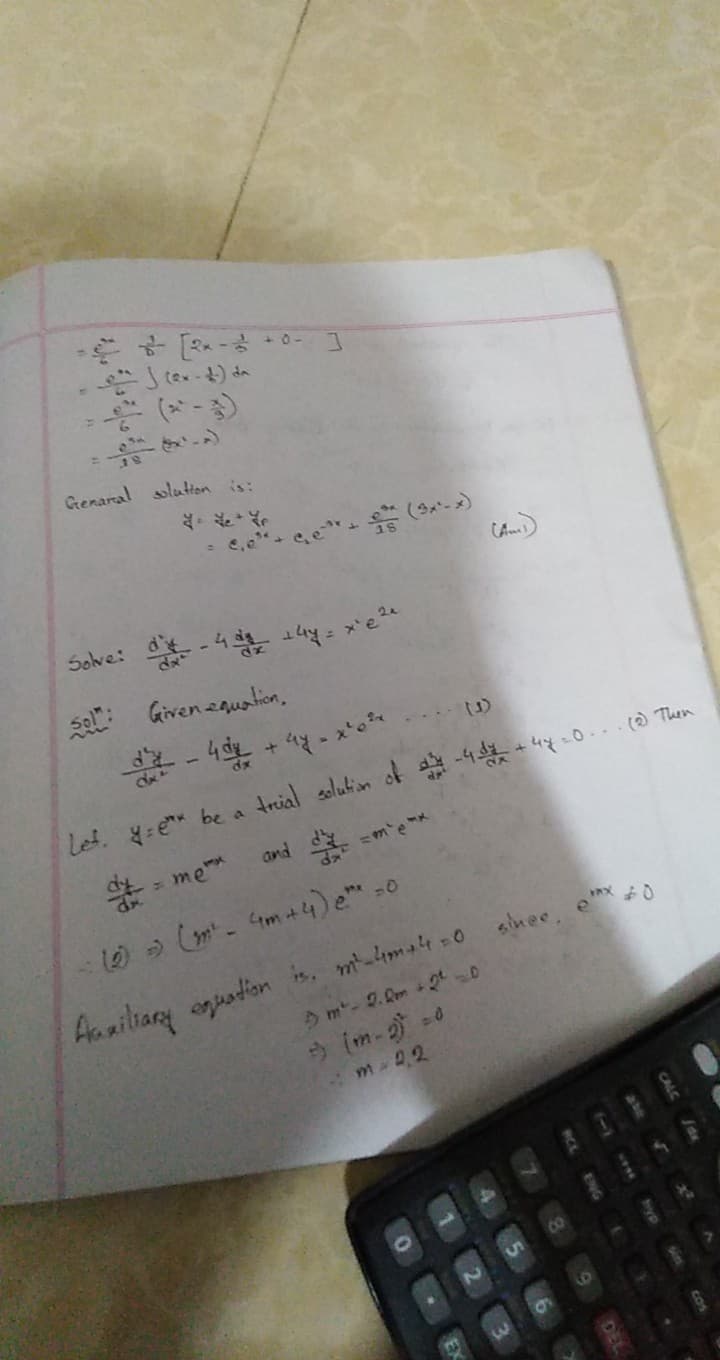 = e^{3x}/6 1/D [2x - 1/3 + 0 - ]
= e^{3x}/6 ∫ (2x - 1/3) dx
= e^{3x}/6 (x² - x/3)
= e^{3x}/18 (3x² - x)
Genaral solution is:
y = y_c + y_p
= c₁e^{3x} + c₂e^{-3x} + e^{3x}/18 (3x² - x) (Ans:)
Solve: d²y/dx² - 4 dy/dx + 4y = x²e^{2x}
Solⁿ: Given equation,
d²y/dx² - 4 dy/dx + 4y = x²e^{2x} .... (1)
Let. y = e^{mx} be a trial solution of d²y/dx² - 4 dy/dx + 4y = 0 ... (2) Then
dy/dx = me^{mx} and d²y/dx² = m²e^{mx}
∴ (2) ⇒ (m² - 4m + 4) e^{mx} = 0
Auxiliary equation is, m² - 4m + 4 = 0 since, e^{mx} ≠ 0
⇒ m² - 2.2m + 2² = 0
⇒ (m - 2)² = 0
∴ m = 2,2
CALC
ENG
hyp
sin
cos
RCL
7
8
9
DEL
4
5
6
1
2
3
0
.